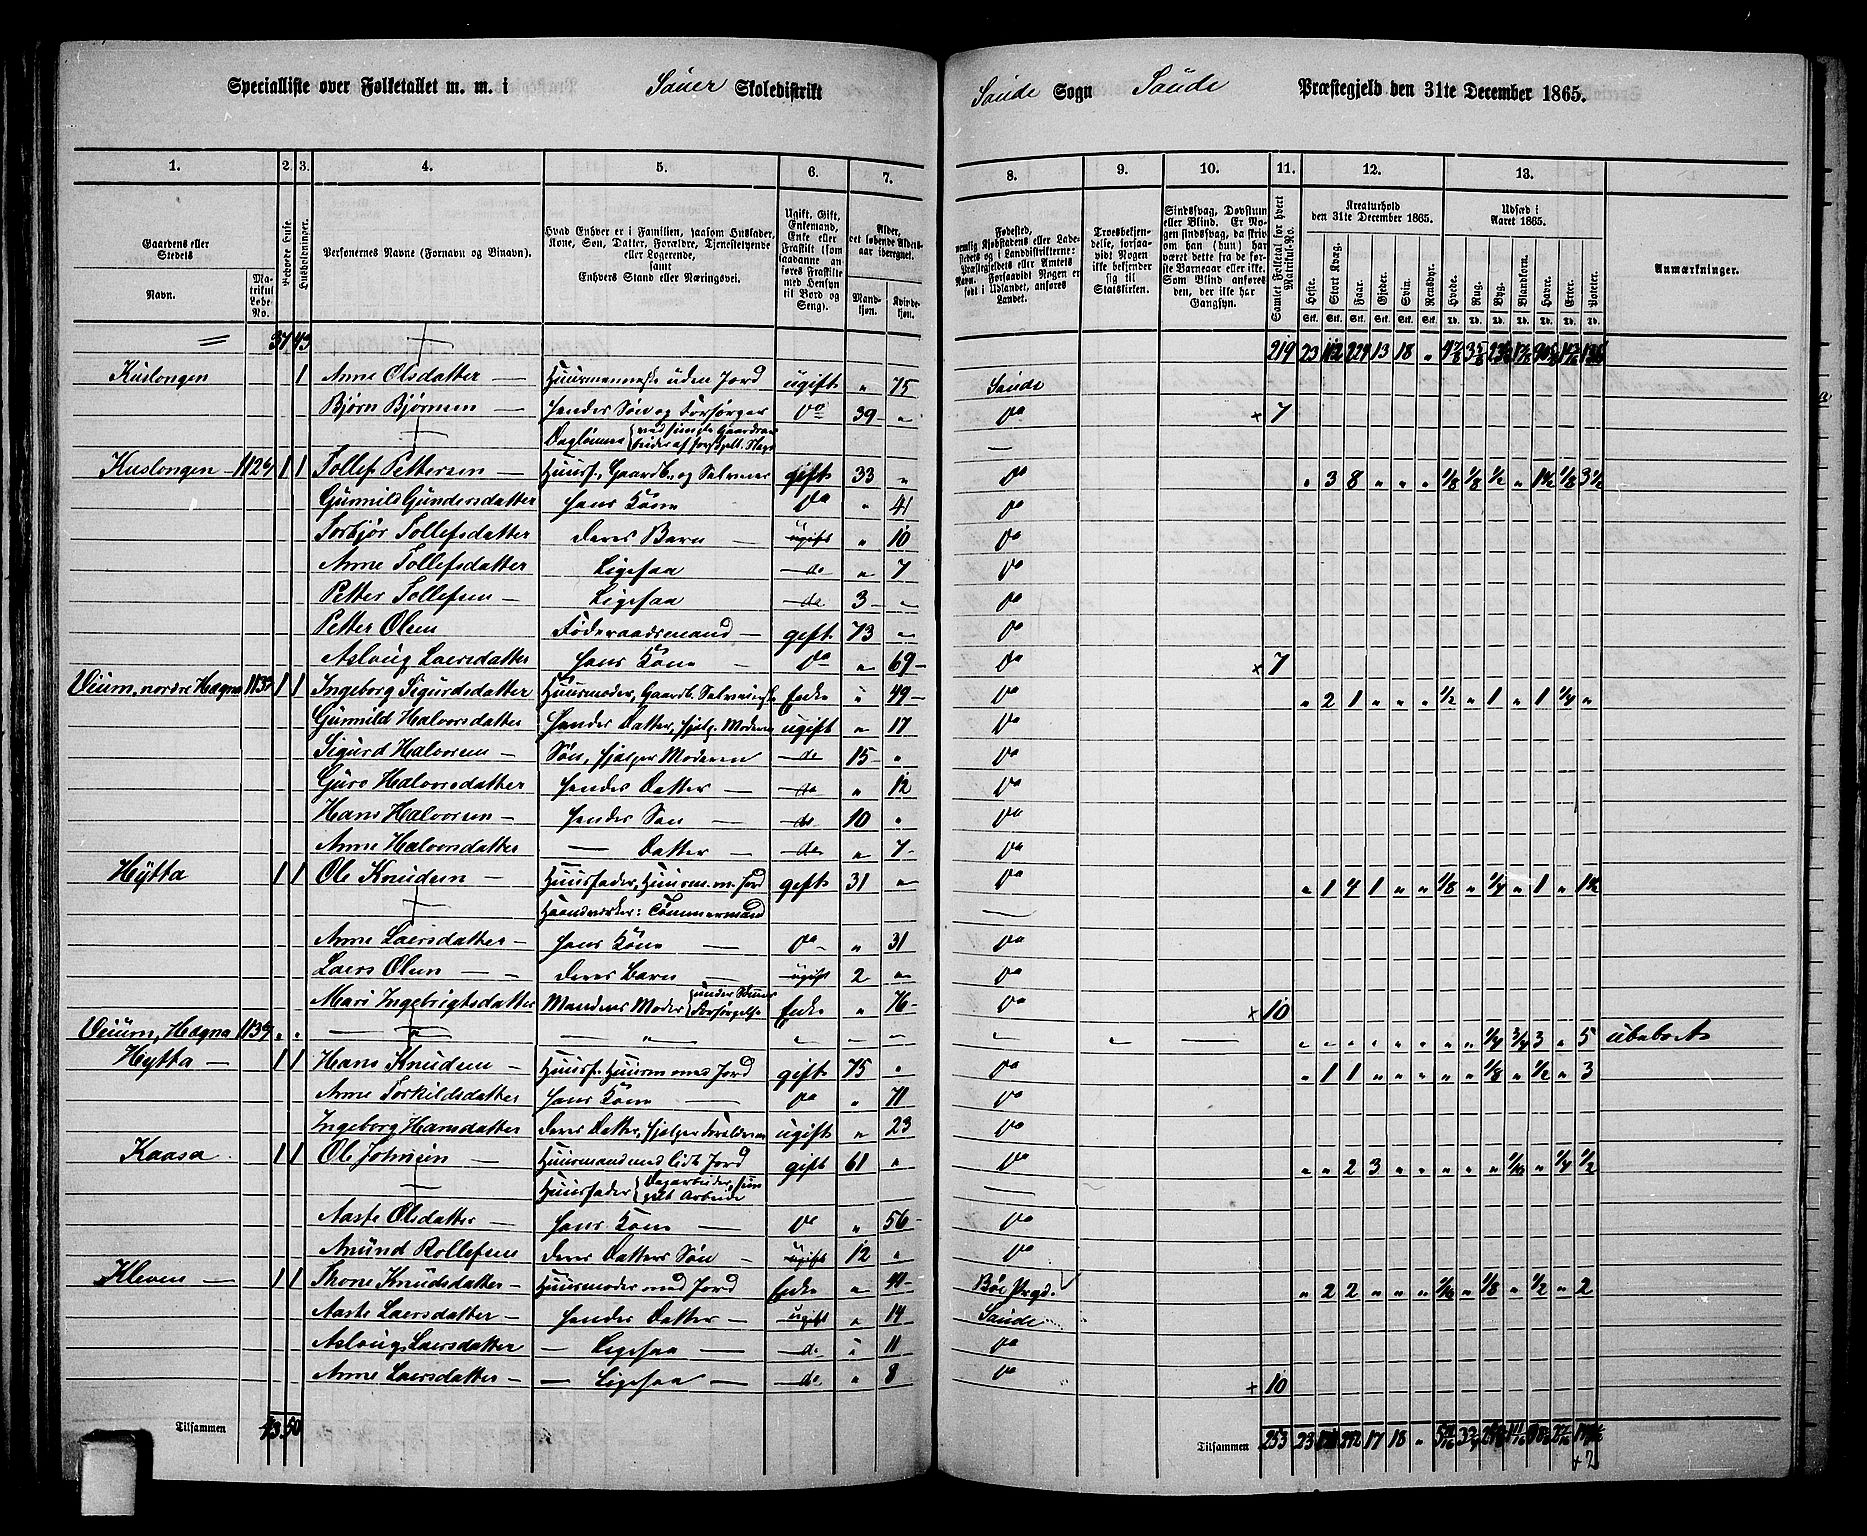 Specialliste over Folketallet m. m. i Sauer Skoledistrikt Saude Sogn Saude Præstegjeld den 31te December 1865.
1. 2. 3. 4. 5. 6. 7. 8. 9. 10. 11. 12. 13.
Gaardens eller Stedets Navn. Matrikul Løbe-No. Beboede Huse. Husholdninger. Personernes Navne (Fornavn og Binavn). Hvad Enhver er i Familien, saasom Husfader, Kone, Søn, Datter, Forældre, Tjenestetyende eller Logerende, samt Enhvers Stand eller Næringsvei. Ugift, Gift, Enkemand, Enke eller Fraskilt (som saadanne anføres Fraskilte med Hensyn til Bord og Seng). Alder, det løbende Aldersaar iberegnet. Mandkjøn. Kvindekjøn.
Fødested, Troesbekjendelse, forsaavidt Nogen ikke bekjender sig til Statskirken. Sindssvag, Døvstum eller Blind. Samlet Folketal for hvert Matrikul-No. Kreaturhold den 31te December 1865. Heste. Stort Kvæg. Faar. Gjeder. Svin. Rensdyr. Udsæd i Aaret 1865. Hvede. Rug. Byg. Blandkorn. Havre. Erter. Poteter. Anmærkninger.
37 43 219 23 112 229 13 18 "
Kuslongen 1 Anne Olsdatter Huusmanneske uden Jord ugift " 75 Saude
Bjørn Bjørnsen hendes Søn og Forsørger Do 39 " Do 7
Daglønner
Kuslongen 112 1 1 Tollef Pettersen Huusf., Gaardb. og Selveier gift 33 " Do " 3 8 " " " 1/8 1/8 1/2 " 1 1/2 1/8 3 1/2
Gunnild Gundersdatter hans Kone Do " 41 Do
Torbjør Tollefsdatter deres Barn ugift " 10 Do
Anne Tollefsdatter Ligesaa do " 7 Do
Petter Tollefsen Ligesaa do 3 " Do
Petter Olsen Føderaadsmand gift 73 " Do
Aslaug Laersdatter hans Kone Do " 69 Do 7
Vium, nordre Hagna 113 1 1 Ingeborg Sigurdsdatter Huusmoder, Gaardb. Selveierske Enke " 49 Do " 2 1 " " " 1/2 " 1 " 1 1/4 "
Gunnild Halvorsdatter hendes Datter, hjelp. Moderen ugift " 17 Do
Sigurd Halvorsen Søn, hjelper Moderen do 15 " Do
Guro Halvorsdatter hendes Datter do " 12 Do
Hans Halvorsen hendes Søn do 10 " Do
Anne Halvorsdatter Datter do " 7 Do
Hÿtta 1 1 Ole Knudsen Huusfader, Huusm. m. Jord gift 31 " Do " 1 4 1 " " 1/8 " 1/4 " 1 " 1 1/2
Haandverker: Tømmermand
Anne Laersdatter hans Kone Do " 31 Do
Laers Olsen deres Barn ugift 2 " Do
Mari Ingebrigtsdatter Mandens Moder under Sønnens Forsørgelse Enke " 76 Do 10
Vium, Hagna 113 " " " " " " " 1/4 3/4 3 " 5 ubeboet
Hytta 1 1 Hans Knudsen Huusf. Huusm. med Jord gift 75 " Do " 1 1 " " " " " 1/8 " 1/2 " 3
Anne Torkildsdatter hans Kone Do " 71 Do
Ingeborg Hansdatter deres Datter, hjelper Forældrene ugift " 23 Do
Kaasa 1 1 Ole Johnsen Huusmand med lidt Jord gift 61 " Do " " 2 3 " " " " " 1/16 " 1/4 1/2
Huusfader
Aaste Olsdatter hans Kone Do " 56 Do
Amund Rollefsen deres Datters Søn ugift 12 " Do
Kleven 1 1 Thone Knudsdatter Huusmoder med Jord Enke " 44 Bøe Prgd. " 2 2 " " " 1/16 " 1/8 " 1/2 " 2
Aaste Laersdatter hendes Datter ugift " 14 Saude
Aslaug Laersdatter Ligesaa do " 11 Do
Anne Laersdatter Ligesaa do " 8 Do 10
Tilsammen 43 50 Tilsammen 253 23 17 18 "
+ 2